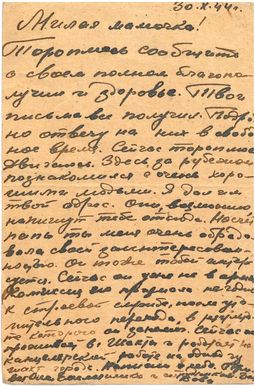 30.X.44г.
Милая мамочка!
Тороплюсь сообщить
о своем полном благопо-
лучии и здоровье. Твои
письма все получил. Подроб-
но отвечу на них в свобод-
ное время. Сейчас тороплюсь
Двигаюсь. Здесь за рубежом
познакомился с очень хоро-
шими людьми. Я дал им
твой адрес. Они, возможно,
напишут тебе отсюда. Насчет
папы ты меня очень обрадо-
вала своей заинтересован-
ностью. Он тоже тобой интере-
суется. Сейчас он уже не в армии
Комиссия его признала негодным
к строевой службе, после
тельного перехода, в результа-
те которого он заболел. Сейчас он
проживает в. и работает на
канцелярской работе
города. Напиши